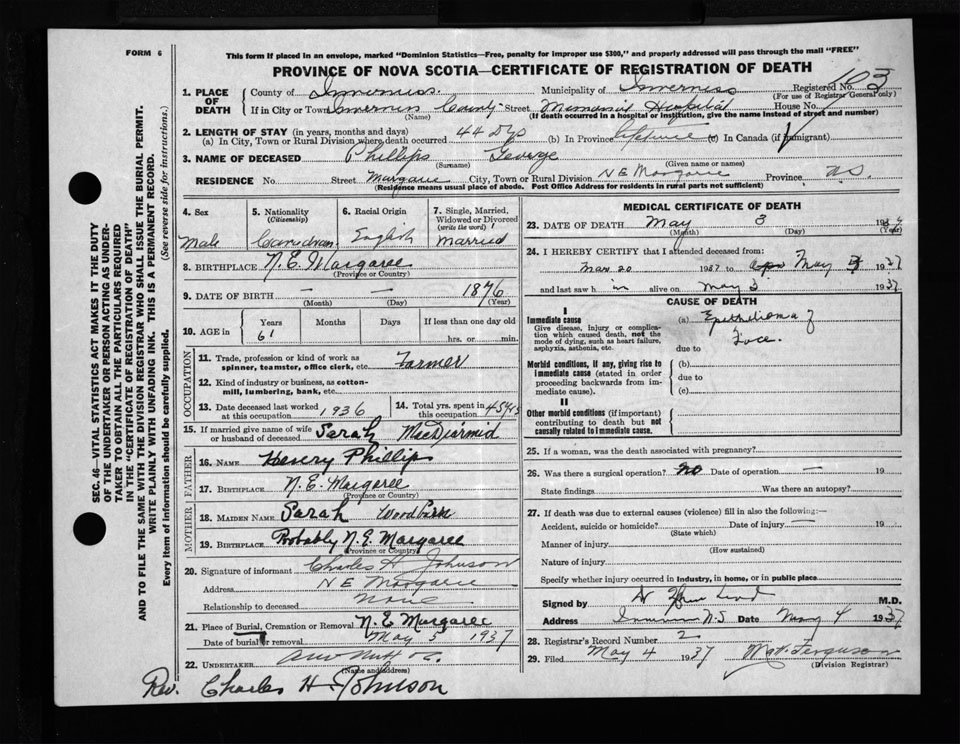 FORM 6
This form if placed in an envelope, marked "Dominion Statistics—Free, penalty for improper use $300," and properly addressed will pass through the mail "FREE"
PROVINCE OF NOVA SCOTIA—CERTIFICATE OF REGISTRATION OF DEATH
SEC. 46—VITAL STATISTICS ACT MAKES IT THE DUTY
OF THE UNDERTAKER OR PERSON ACTING AS UNDER-
TAKER TO OBTAIN ALL THE PARTICULARS REQUIRED
IN THE "CERTIFICATE OF REGISTRATION OF DEATH"
AND TO FILE THE SAME WITH THE DIVISION REGISTRAR WHO SHALL ISSUE THE BURIAL PERMIT.
WRITE PLAINLY WITH UNFADING INK. THIS IS A PERMANENT RECORD.
Every item of information should be carefully supplied. (See reverse side for instructions.)
1. PLACE OF DEATH
County of Inverness Municipality of Inverness Registered No. 103
(For use of Registrar General only)
If in City or Town Inverness County Street Memorial Hospital House No.
(Name) (If death occurred in a hospital or institution, give the name instead of street and number)
2. LENGTH OF STAY (in years, months and days)
(a) In City, Town or Rural Division where death occurred 44 Dys (b) In Province Lifetime (c) In Canada (if immigrant)
3. NAME OF DECEASED Phillips George
(Surname) (Given name or names)
RESIDENCE No. Street Margaree City, Town or Rural Division N E Margaree Province N.S.
(Residence means usual place of abode. Post Office Address for residents in rural parts not sufficient)
4. Sex Male
5. Nationality (Citizenship) Canadian
6. Racial Origin English
7. Single, Married, Widowed or Divorced (write the word) Married
8. BIRTHPLACE N.E. Margaree
(Province or Country)
9. DATE OF BIRTH — — 1876
(Month) (Day) (Year)
10. AGE in Years Months Days If less than one day old
61 hrs. or min.
OCCUPATION
11. Trade, profession or kind of work as spinner, teamster, office clerk, etc. Farmer
12. Kind of industry or business, as cotton-mill, lumbering, bank, etc.
13. Date deceased last worked at this occupation 1936
14. Total yrs. spent in this occupation 45 yrs
15. If married give name of wife or husband of deceased Sarah MacDiarmid
FATHER
16. NAME Henry Phillips
17. BIRTHPLACE N.E. Margaree
(Province or Country)
MOTHER
18. MAIDEN NAME Sarah
19. BIRTHPLACE Probably N.E. Margaree
(Province or Country)
20. Signature of informant Charles H Johnson
Address N E Margaree
Relationship to deceased None
21. Place of Burial, Cremation or Removal N.E. Margaree
Date of burial or removal May 5 1937
22. UNDERTAKER
(Name and address)
Rev. Charles H. Johnson
MEDICAL CERTIFICATE OF DEATH
23. DATE OF DEATH May 3 193
(Month) (Day) (Year)
24. I HEREBY CERTIFY that I attended deceased from:
Mar 20 1937 to May 3 1937
and last saw h im alive on May 3 1937
CAUSE OF DEATH
I
Immediate cause (a) Epithelioma of
Give disease, injury or complication which caused death, not the mode of dying, such as heart failure, asphyxia, asthenia, etc. Face.
due to
Morbid conditions, if any, giving rise to immediate cause (stated in order proceeding backwards from immediate cause). (b)
due to
(c)
II
Other morbid conditions (if important) contributing to death but not causally related to immediate cause.
25. If a woman, was the death associated with pregnancy?
26. Was there a surgical operation? No Date of operation — 19
State findings Was there an autopsy?
27. If death was due to external causes (violence) fill in also the following:—
Accident, suicide or homicide? Date of injury — 19
(State which)
Manner of injury
(How sustained)
Nature of injury
Specify whether injury occurred in industry, in home, or in public place
Signed by M.D.
Address N.S. Date May 4 1937
28. Registrar's Record Number 2
29. Filed May 4 1937 Ferguson
(Division Registrar)